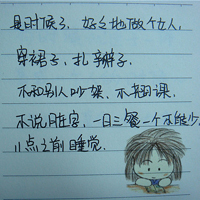 是时候了，好好地做个女人，
穿裙子，扎辫子。
不和别人吵架，不翘课。
不说脏字，一日三餐一个不能少
11点之前睡觉。